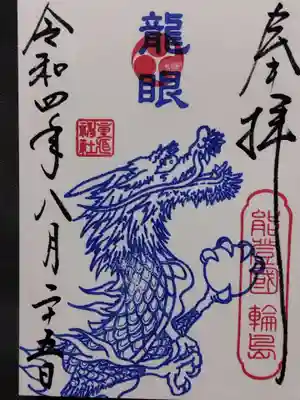 奉拝
龍眼
能登國 輪島
重蔵神社
令和四年八月二十五日